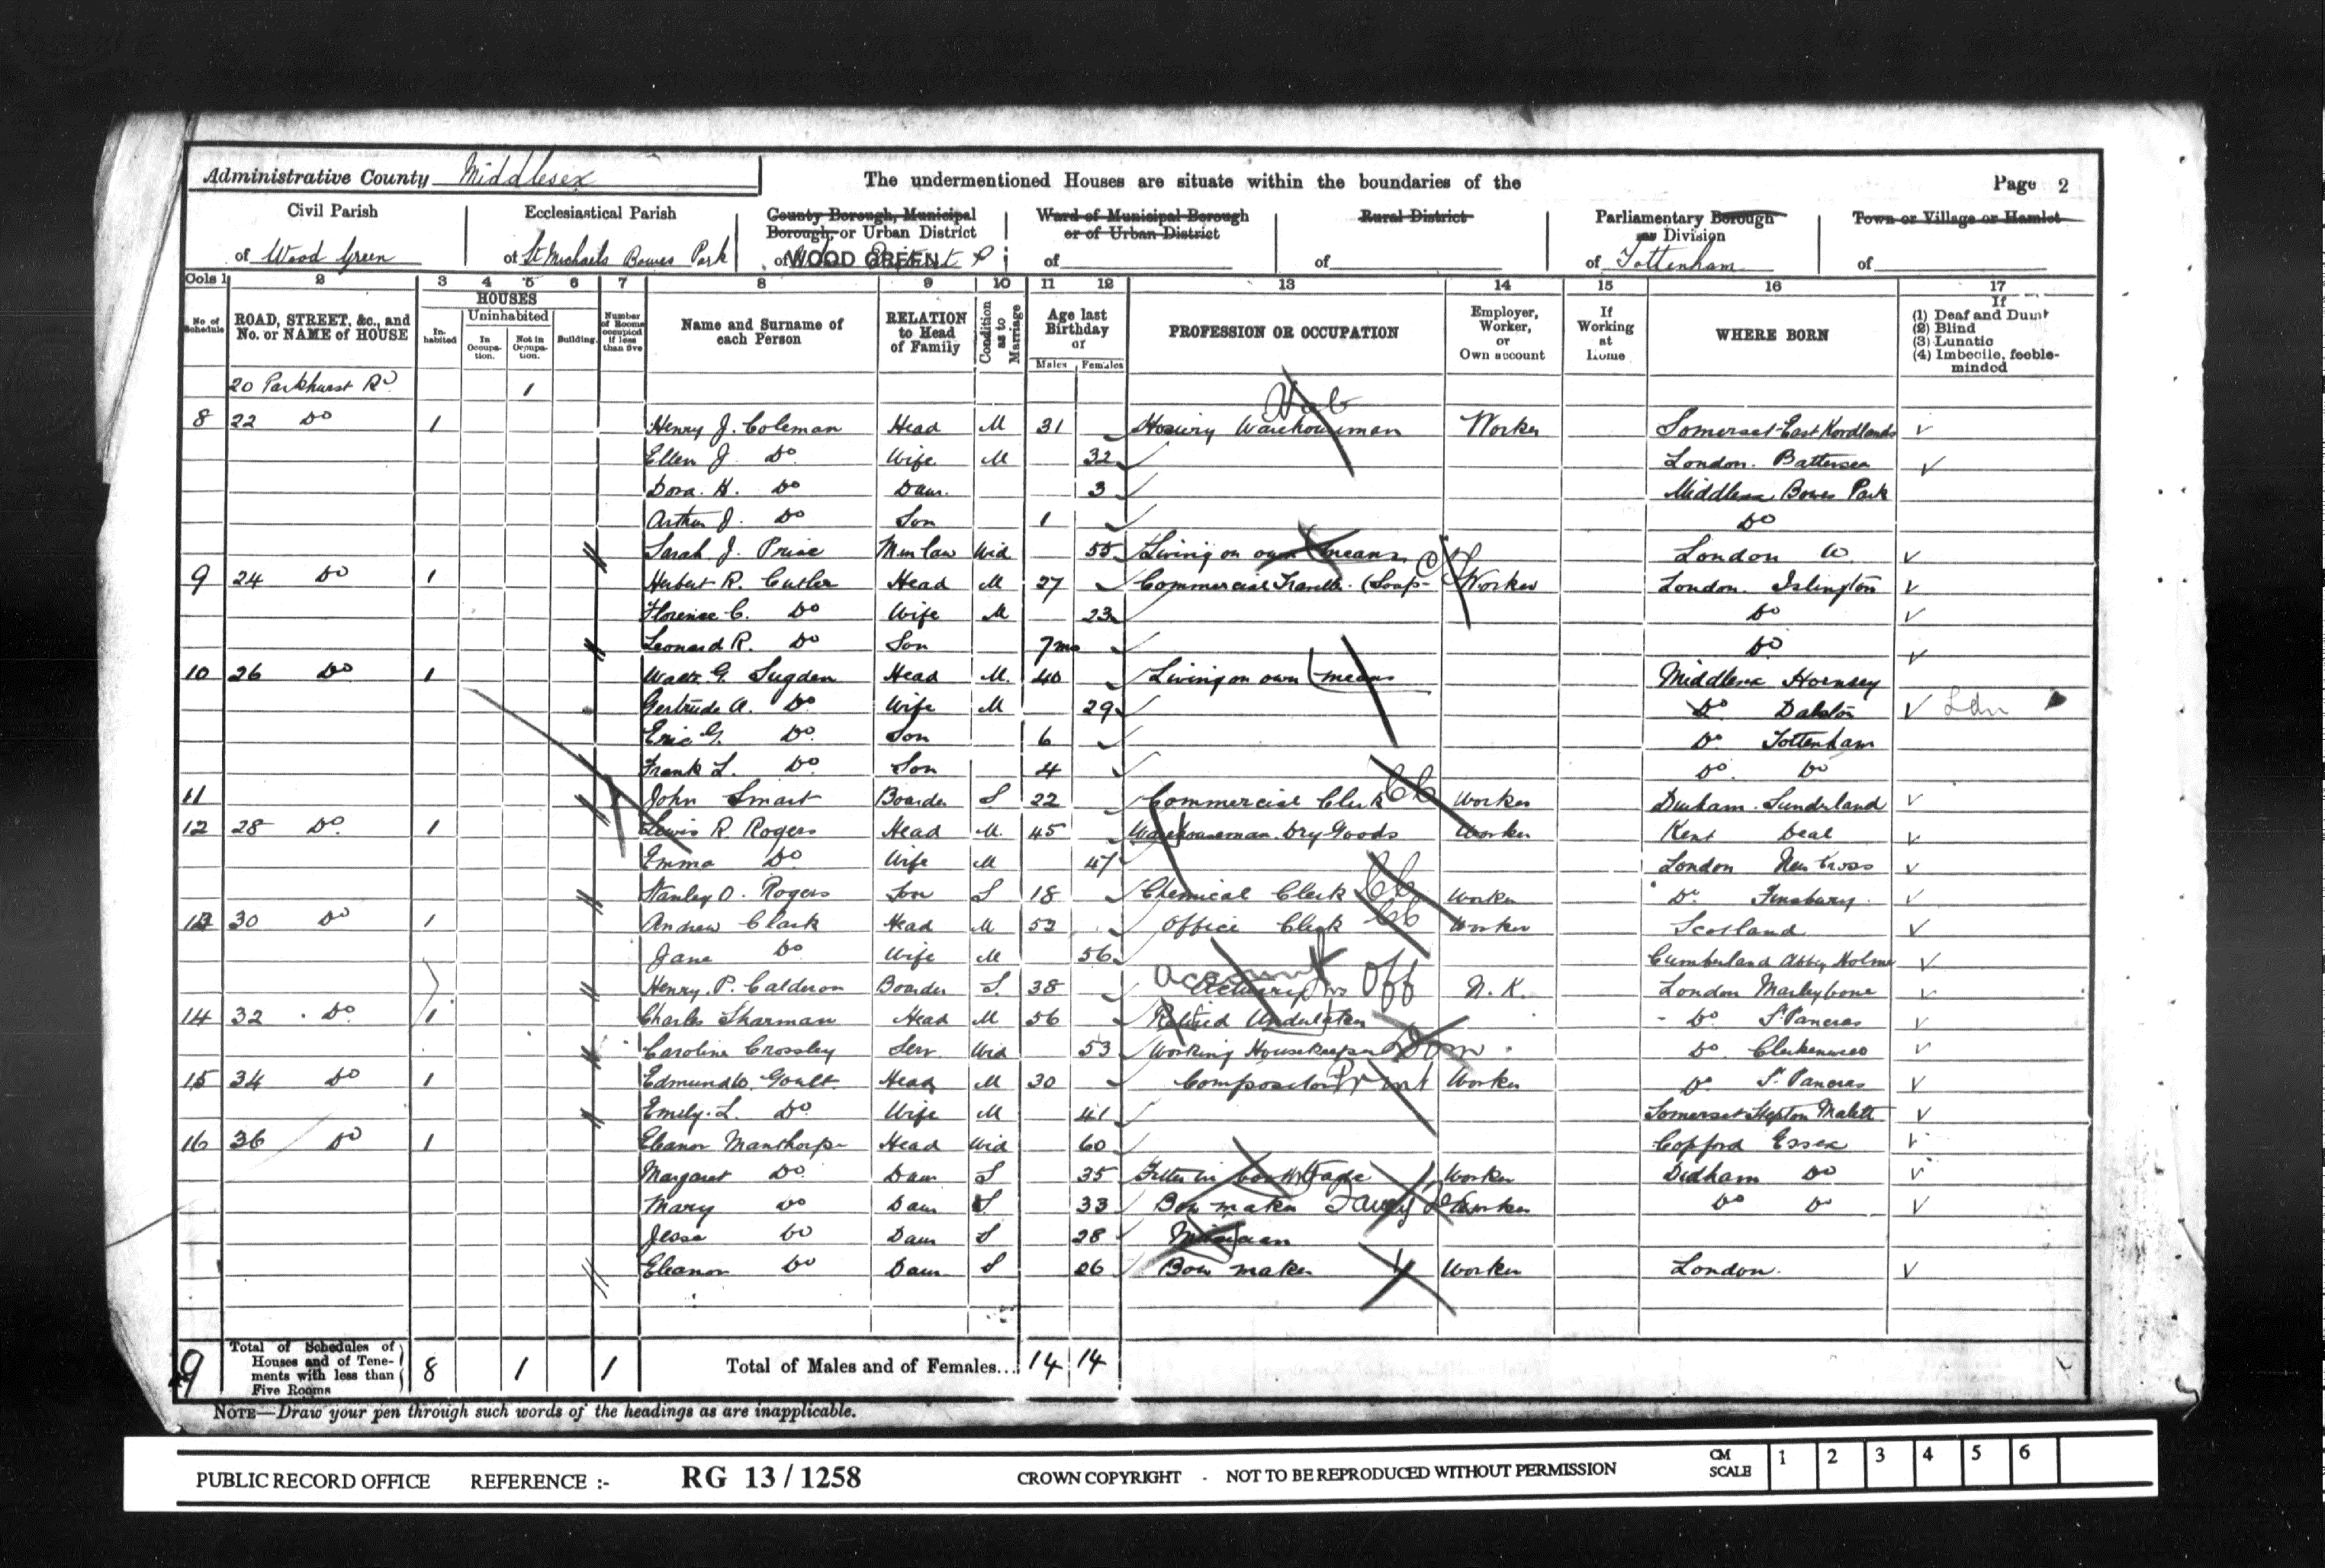 Administrative County Middlesex
The undermentioned Houses are situate within the boundaries of the
Page 2
Civil Parish of Wood Green
Ecclesiastical Parish of St Michaels Bowes Park
County Borough, Municipal Borough, or Urban District of WOOD GREEN
Ward of Municipal Borough or of Urban District of
Rural District of
Parliamentary Borough or Division of Tottenham
Town or Village or Hamlet of
Cols 1 2 3 4 5 6 7 8 9 10 11 12 13 14 15 16 17
No of Schedule
ROAD, STREET, &c., and No. or NAME of HOUSE
HOUSES
Inhabited
Uninhabited
In Occupation.
Not in Occupation.
Building.
Number of Rooms occupied if less than five
Name and Surname of each Person
RELATION to Head of Family
Condition as to Marriage
Age last Birthday of
Males Females
PROFESSION OR OCCUPATION
Employer, Worker, or Own account
If Working at Home
WHERE BORN
If
(1) Deaf and Dumb
(2) Blind
(3) Lunatic
(4) Imbecile, feeble-minded
20 Parkhurst Rd 1
8 22 Do 1 Henry J. Coleman Head M 31 Hosiery Warehouseman Worker Somerset East
Ellen J. Do Wife M 32 London. Battersea
Dora. H. Do Daur. 3 Middlesex Bowes Park
Arthur J. Do Son 1 Do
Sarah J. Price M in law Wid 55 Living on own means London W
9 24 Do 1 Herbert R. Cutler Head M 27 Commercial Travellr. (Soap- Worker London. Islington
Florence C. Do Wife M 23 Do
Leonard R. Do Son 7mo Do
10 26 Do 1 Waltr. G. Sugden Head M. 40 Living on own means Middlesex Hornsey
Gertrude A. Do Wife M 29 Do Dalston Ldn
Eric G. Do Son 6 Do Tottenham
Frank L. Do Son 4 Do Do
11 John Smart Boarder S 22 Commercial Clerk Worker Durham. Sunderland
12 28 Do 1 Lewis R. Rogers Head M. 45 Warehouseman. Dry Goods Worker Kent Deal
Emma Do Wife M 47 London New Cross
Stanley O. Rogers Son S 18 Chemical Clerk Worker Do Finsbury
13 30 Do 1 Andrew Clark Head M 52 Office Clerk Worker Scotland
Jane Do Wife M 56 Cumberland Abbey Holme
Henry. P. Calderon Boarder S. 38 Off N. K. London Marleybone
14 32 Do 1 Charles Sharman Head M 56 Retired Undertaker Do St Pancras
Caroline Crossley Serv Wid 53 Working Housekeeper Dom Do Clerkenwell
15 34 Do 1 Edmund W. Goult Head M 30 Compositor Print Worker Do St Pancras
Emily. L. Do Wife M 41 Somerset Shepton Malett
16 36 Do 1 Eleanor Manthorpe Head Wid 60 Copford Essex
Margaret Do Daur S 35 Worker Dedham Do
Mary Do Daur S 33 Bow maker Worker Do Do
Jessie Do Daur S 28 Musician
Eleanor Do Daur S 26 Bow maker Worker London.
9 Total of Schedules of Houses and of Tenements with less than Five Rooms 8 1 1 Total of Males and of Females... 14 14
NOTE—Draw your pen through such words of the headings as are inapplicable.
PUBLIC RECORD OFFICE REFERENCE :- RG 13 / 1258 CROWN COPYRIGHT - NOT TO BE REPRODUCED WITHOUT PERMISSION CM SCALE 1 2 3 4 5 6